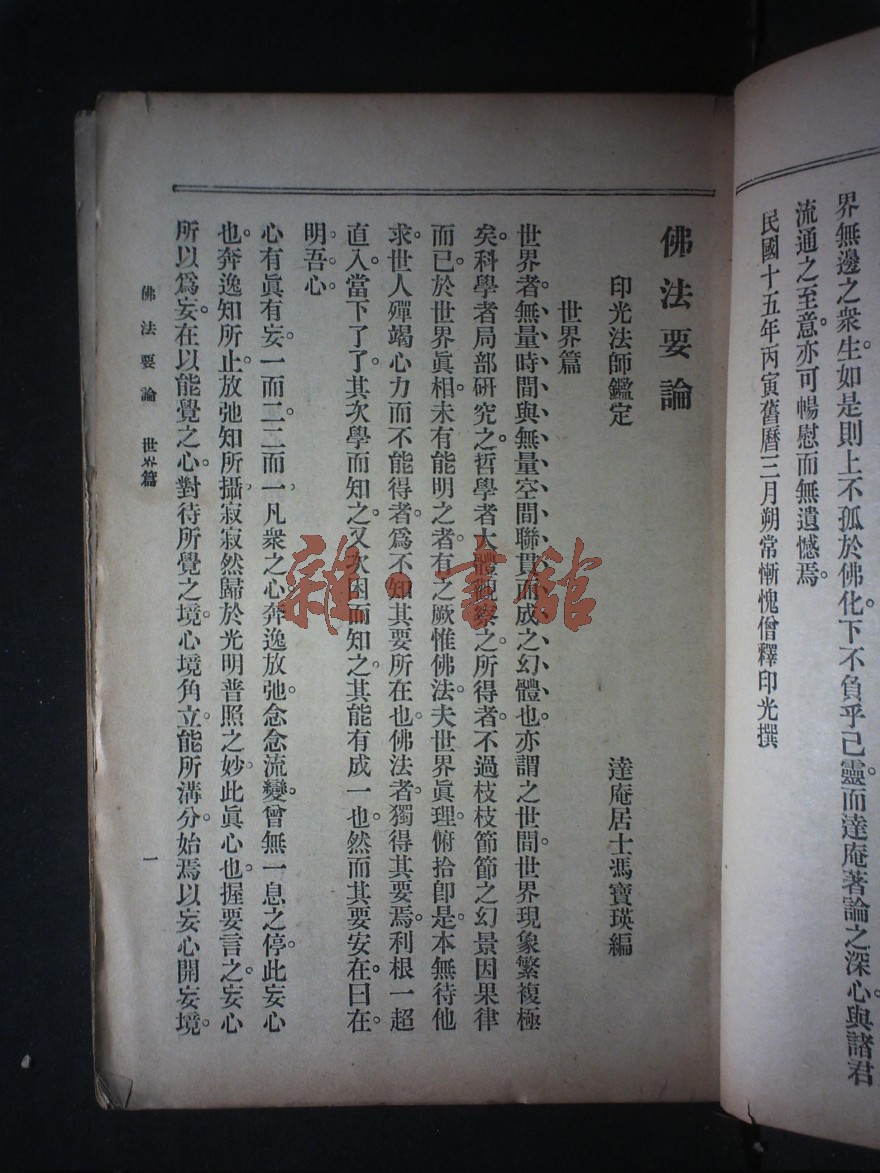 界無邊之衆生如是則上不孤於佛化。下不負乎己靈。而達庵著論之深心。與諸君
流通之至意。亦可暢慰而無遺憾焉。
民國十五年丙寅舊曆三月朔常慚愧僧釋印光撰
佛法要論
印光法師鑑定 達庵居士馮寶瑛編
世界篇
世界者、無量時間與無量空間聯貫而成之幻體也。亦謂之世間。世界現象繁複極
矣。科學者局部研究之。哲學者大體觀察之。所得者不過枝枝節節之幻景因果律
而已。於世界眞相。未有能明之者。有之厥惟佛法。夫世界眞理。俯拾卽是。本無待他
求。世人殫竭心力而不能得者。爲不知其要所在也。佛法者。獨得其要焉。利根一超
直入。當下了了。其次學而知之。又次困而知之。其能有成一也。然而其要安在。曰在
明吾心。
心有眞有妄。一而二。二而一。凡衆之心。奔逸放弛。念念流變。曾無一息之停。此妄心
也。奔逸知所止。放弛知所攝。寂寂然歸於光明普照之妙。此眞心也。握要言之。妄心
所以爲妄。在以能覺之心。對待所覺之境。心境角立。能所溝分。始焉以妄心開妄境。
佛法要論 世界篇 一
雜·書館